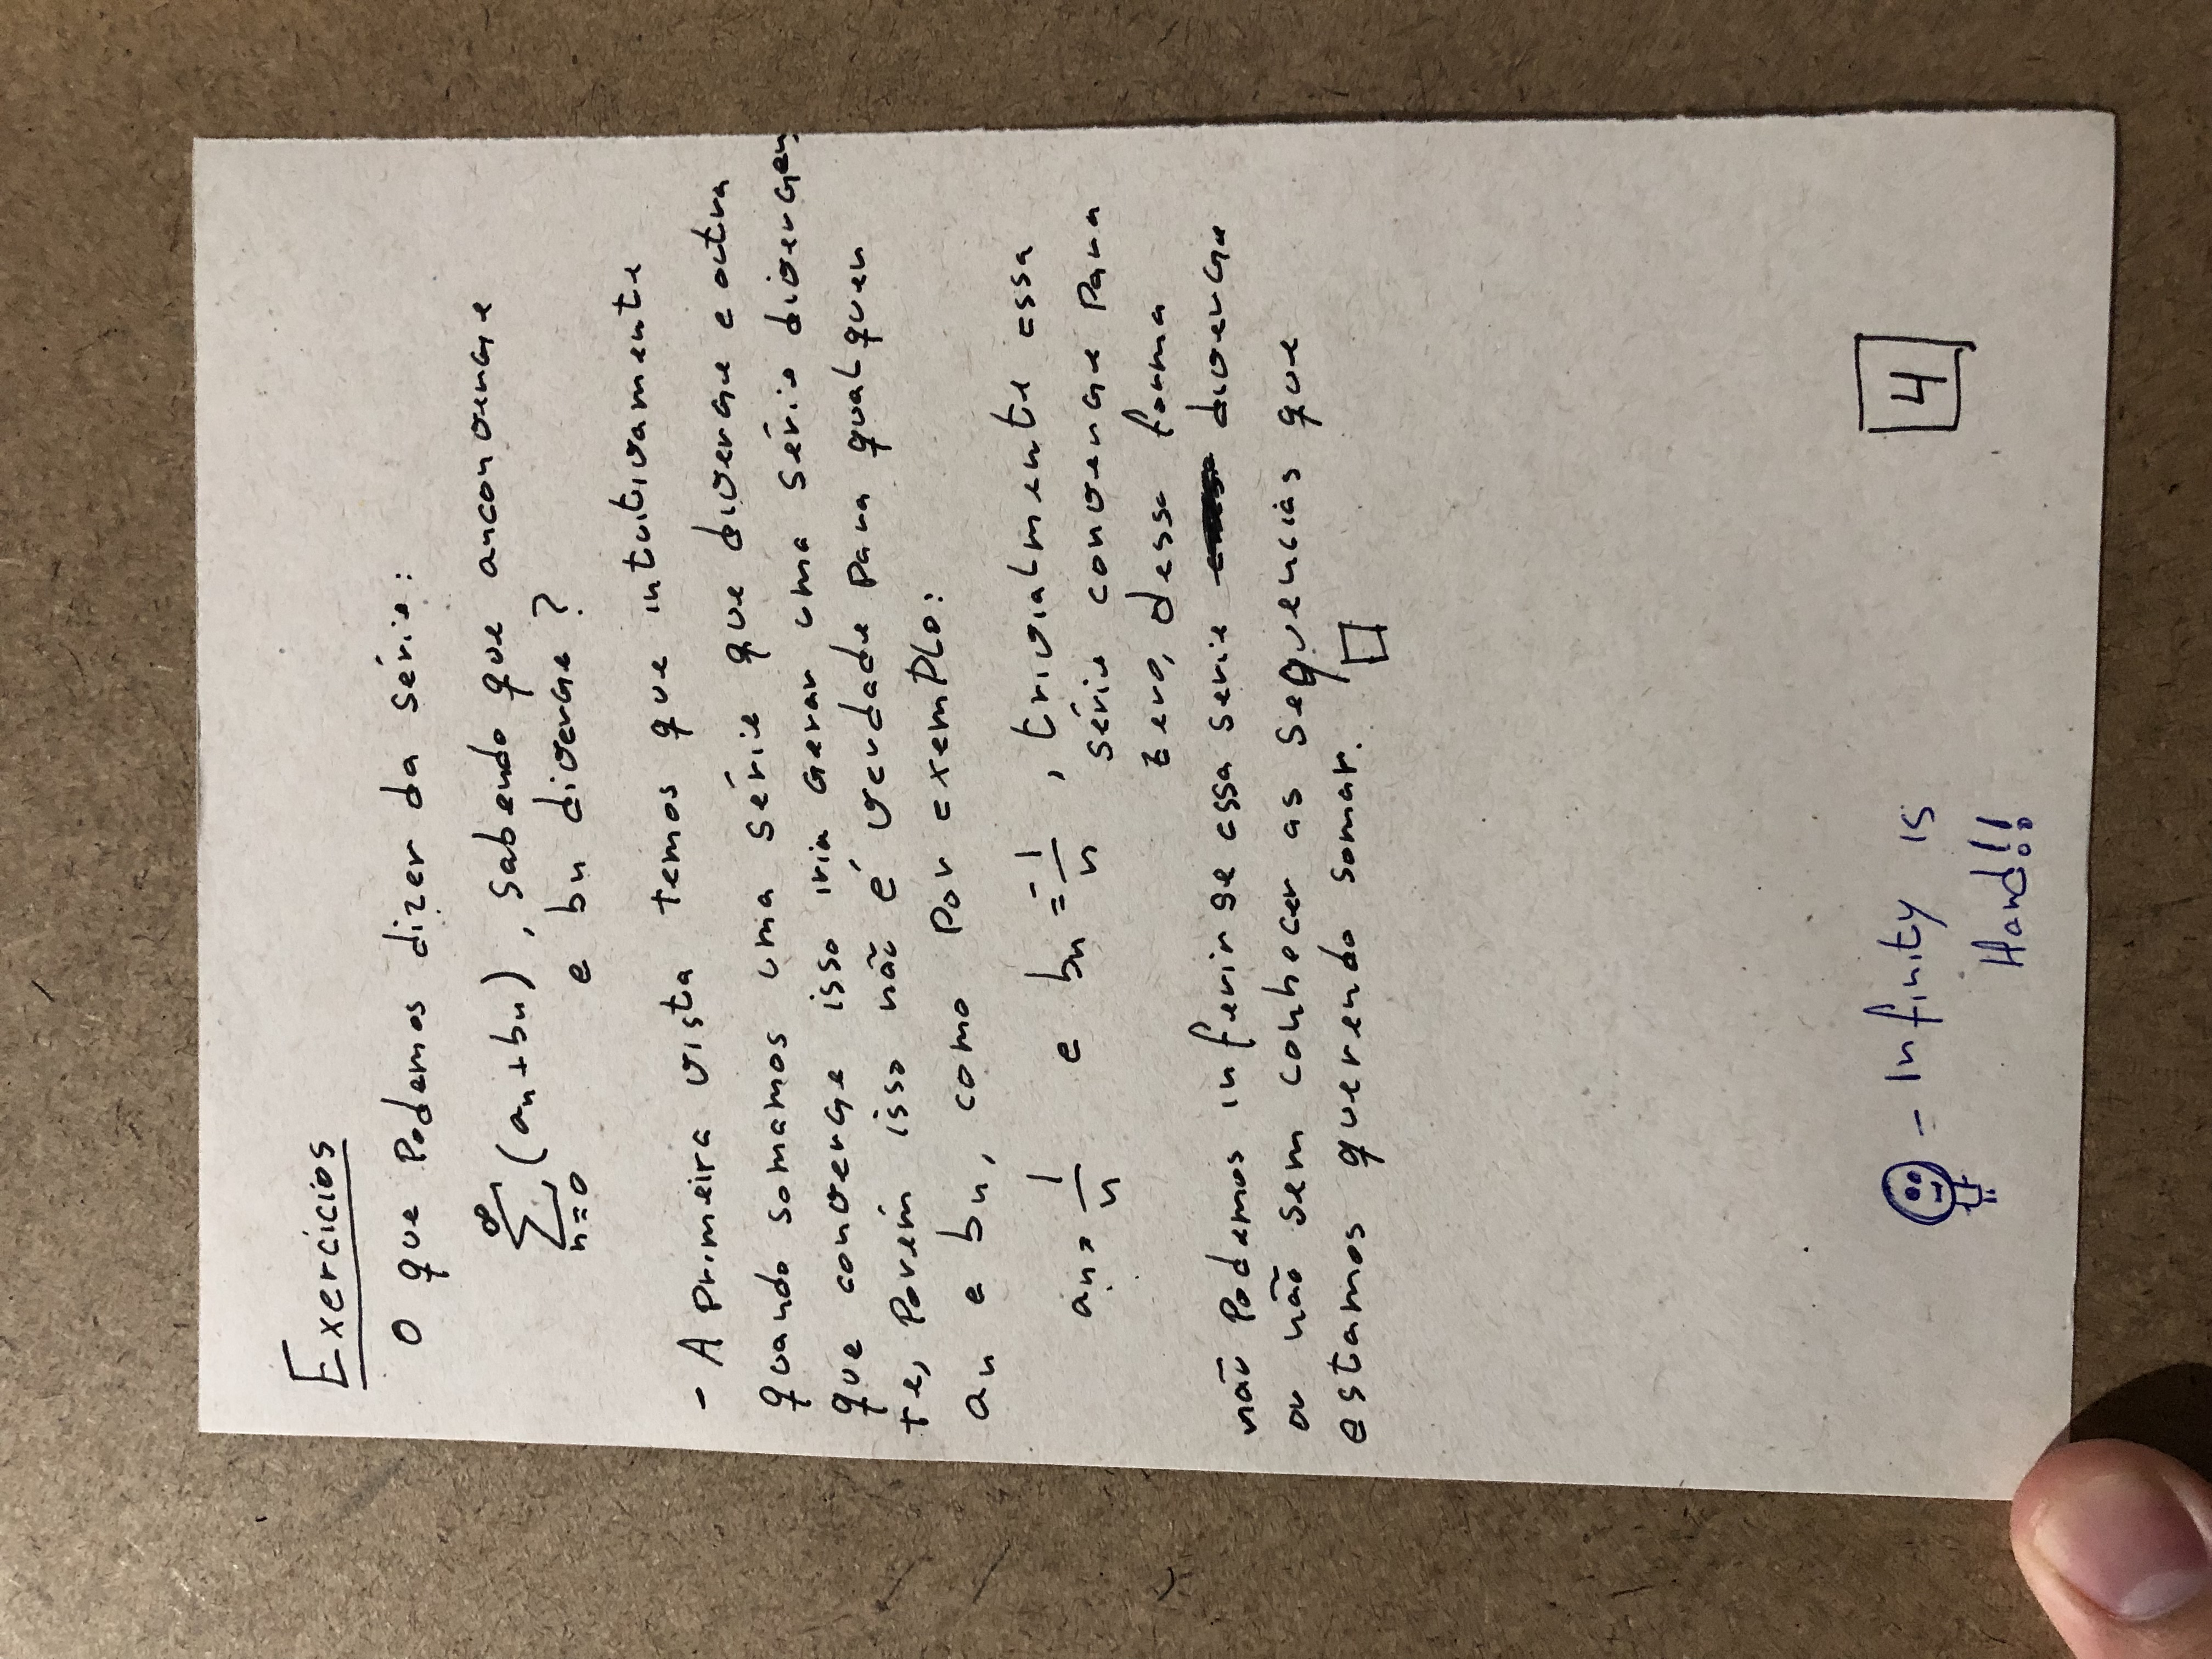 Exercícios
O que Podemos dizer da série:
∞
∑ (an + bn), Sabendo que an converge
n=0 e bn diverge?
- A Primeira vista temos que intuitivamente
quando somamos uma série que diverge e outra
que converge isso iria gerar uma série divergen
te, Porém isso não é verdade para qualquer
an e bn, como Por exemplo:
an = 1/n e bn = -1/n, trivialmente essa
série converge para
zero, dessa forma
não Podemos inferir se essa serie diverge
ou não sem conhecer as sequencias que
estamos querendo somar. □
- Infinity is
Hard!!
4